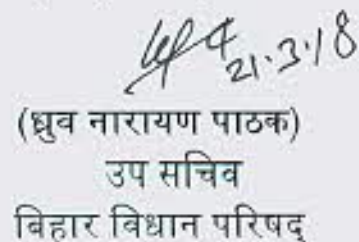 21.3.18
(ध्रुव नारायण पाठक)
उप सचिव
बिहार विधान परिषद्